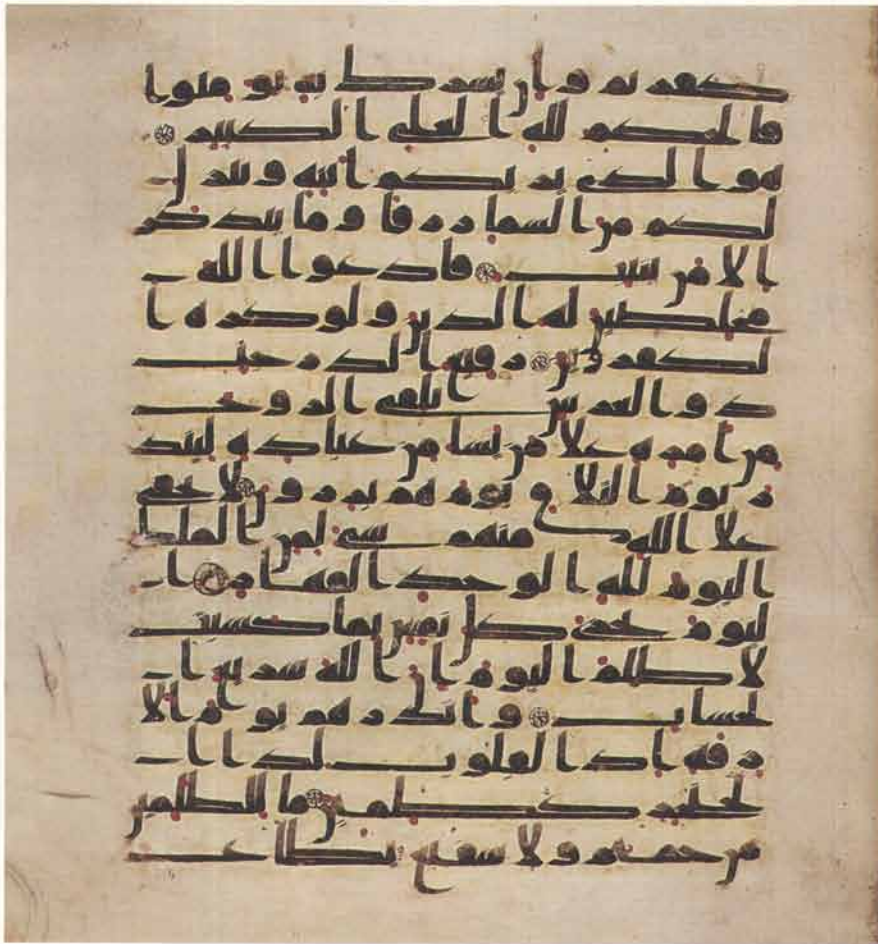 كفرتم وان يشرك به تومنوا
فالحكم لله العلي الكبير
هو الذي يريكم ايته وينزل
لكم من السما رزقا وما يتذكر
الا من ينيب فادعوا الله
مخلصين له الدين ولو كره ا
لكفرون رفيع الدرجت
ذو العرش يلقي الروح
من امره على من يشا من عباده لينذ
ر يوم التلاق يوم هم برزون لا يخفى
على الله منهم شي لمن الملك
اليوم لله الوحد القهار ا
ليوم تجزى كل نفس بما كسبت
لا ظلم اليوم ان الله سريع ا
لحساب وانذرهم يوم الا
زفه اذ القلوب لدى ا
لحنجر كظمين ما للظلمين
من حميم ولا شفيع يطاع